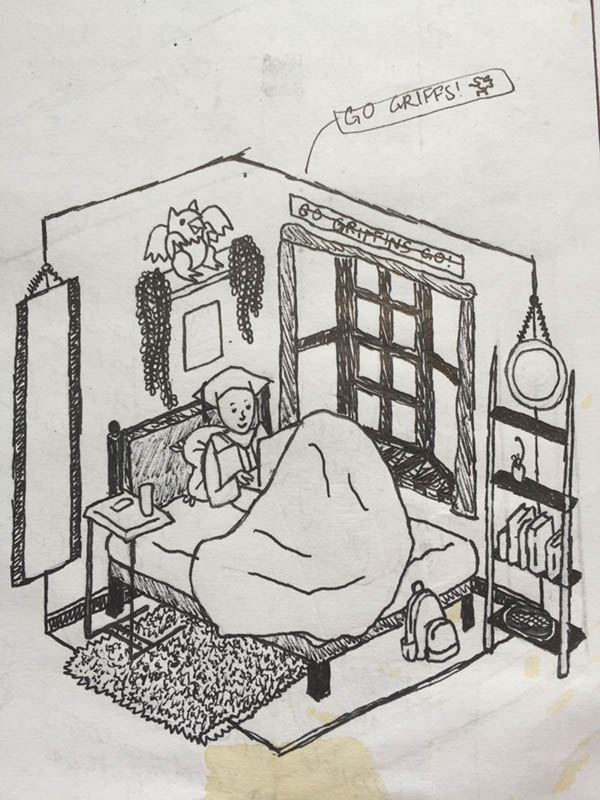 GO GRIFFS!
GO GRIFFINS GO!